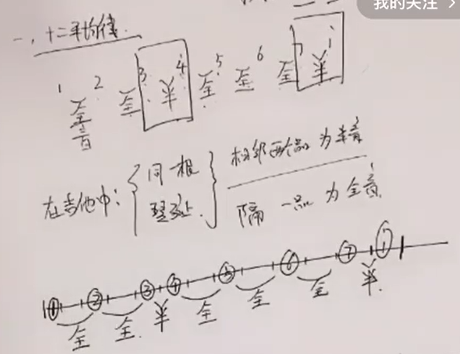 我的关注 >
一，十二平均律.
1 2 3 4 5 6 7 i
全音 全 半 全 全 全 半
在吉他中：{同一根琴弦} 相邻两品为半音
隔一品为全音
① ② ③ ④ ⑤ ⑥ ⑦ ①
全 全 半 全 全 全 半